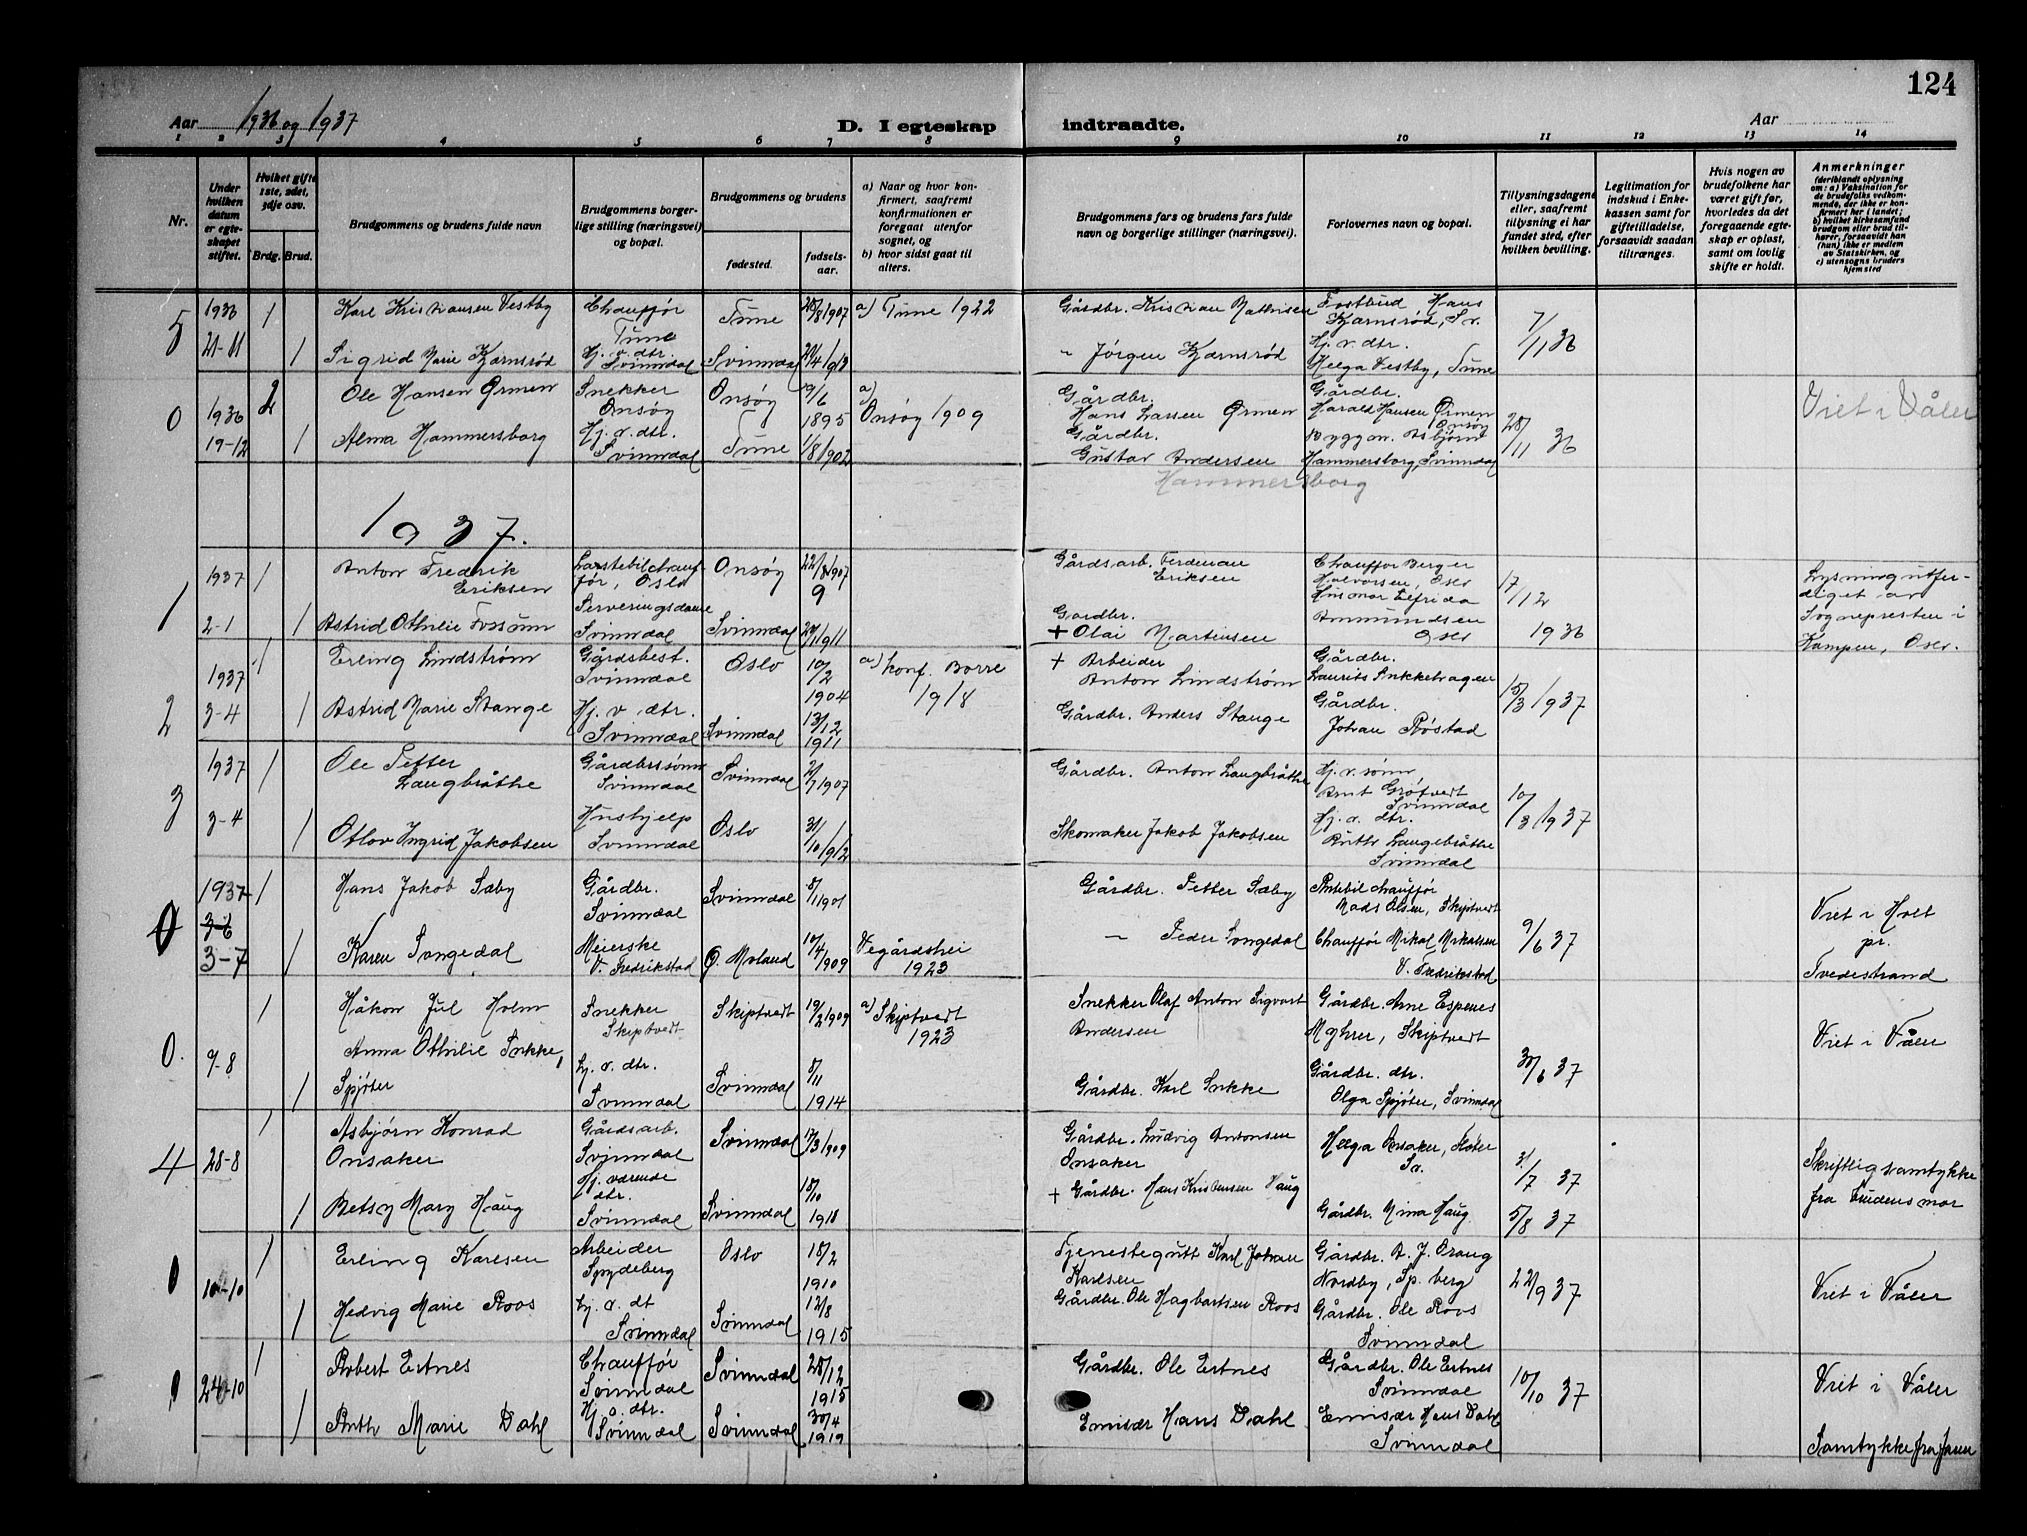 124
Aar 1936 og 1937 D. I egteskap indtraadte. Aar
1 2 3 4 5 6 7 8 9 10 11 12 13 14
Nr.
Under hvilken datum er egteskapet stiftet.
Hvilket gifte 1ste, 2det, 3dje osv.
Brdg. Brud.
Brudgommens og brudens fulde navn
Brudgommens borgerlige stilling (næringsvei) og bopæl.
Brudgommens og brudens
fødested. fødselsaar.
a) Naar og hvor konfirmert, saafremt konfirmutionen er foregaat utenfor sognet, og
b) hvor sidst gaat til alters.
Brudgommens fars og brudens fars fulde navn og borgerlige stillinger (næringsvei).
Forlovernes navn og bopæl.
Tillysningsdagene eller, saafremt tillysning ei har fundet sted, efter hvilken bevilling.
Legitimation for indskud i Enkekassen samt for giftetilladelse, forsaavidt saadan tiltrænges.
Hvis nogen av brudefolkene har været gift før, hvorledes da det foregaaende egteskap er opløst, samt om lovlig skifte er holdt.
Anmerkninger
(deriblandt oplysning om: a) Vaksination for de brudefolks vedkommende, der ikke er konfirmert her i landet;
b) hvilket kirkesamfund brudgom eller brud tilhører, forsaavidt han (hun) ikke er medlem av Statskirken, og
c) utensogns bruders hjemsted
5 1936 1 Karl Kristiansen Vestby Chauffør Tune Tune 28/8 1907 a) Tune 1922 Gårdbr. Kristian Mathisen Postbud Hans Kjærnsrød, Sv. 7/11 36
21-11 1 Sigrid Marie Kjærnsrød Hj. v. dtr. Svinndal Svinndal 1913 " Jørgen Kjærnsrød Hj. v. dtr. Helga Vestby, Tune
0 1936 2 Ole Hansen Ørmen Snekker Onsøy Onsøy 19/6 1895 a) Onsøy 1909 Gårdbr. Hans Larsen Ørmen Gårdbr. Harald Hansen Ørmen Onsøy 28/11 36 Viet i Våler
19-12 1 Alma Hammersborg Hj. v. dtr. Svinndal Tune 1/8 1902 Gårdbr. Gustav Andersen Hammersborg Byggm. Asbjørn Hammersborg, Svinndal
1937.
1 1937 1 Anton Fredrik Eriksen Lastebilchauffør, Oslo Onsøy 22/8 1907 9 Gårdsarb. Ferdinan Eriksen Chauffør Berger Halvorsen, Oslo 17/12 1936 Lysning utferdiget av Sognepresten i Kampen, Oslo.
2-1 1 Astrid Othilie Fossum Serveringsdame Svinndal Svinndal 1911 Gardbr. + Olai Martinsen Husmor Elfrida Amundsen Oslo
2 1937 1 Erling Lindstrøm Gårdsbest. Svinndal Oslo 10/2 1904 a) Konf. Borre 1918 + Arbeider Anton Lindstrøm Gårdbr. Laurits 15/3 1937
3-4 1 Astrid Marie Stange Hj. v. dtr. Svinndal Svinndal 13/12 1911 Gårdbr. Anders Stange Gårdbr. Johan Røstad
3 1937 1 Ole Petter Langbråthe Gårdbrssønn Svinndal Svinndal 2/7 1907 Gårdbr. Anton Langbråthe Hj. v. sønn Arnt Grøtvedt Svinndal 10/3 1937
3-4 1 Otlov Ingrid Jakobsen Hushjelp Svinndal Oslo 31/10 1912 Skomaker Jakob Jakobsen Hj. v. dtr. Ruth Langebråthe Svinndal
0 1937 1 Hans Jakob Sæby Gårdbr. Svinndal Svinndal 8/1 1901 Gårdbr. Petter Sæby Rutebilchauffør Mads Olsen, Skiptvedt 9/6 37 Viet i Holt pr. Tvedestrand
3-6
3-7 1 Karen Songedal Meierske V. Fredrikstad Ø. Moland 10/4 1909 Vegårdshei 1923 " Peder Songedal Chauffør Mikal Mikalsen V. Fredrikstad
0. 9-8 1 Håkon Jul Holm Snekker Skiptvedt Skiptvedt 19/2 1909 a) Skiptvedt 1923 Snekker Olaf Anton Sigvart Andersen Gårdbr. Arne Espenes Myhrer, Skiptvedt 30/6 37 Viet i Våler
1 Anna Othilie Sukke, Spjøter hj. v. dtr. Svinndal Svinndal 8/11 1914 Gårdbr. Karl Sukke Gårdbr. dtr. Olga Spjøter, Svinndal
4 28-8 1 Asbjørn Konrad Onsaker Gårdsarb. Svinndal Svinndal 17/3 1909 Gårdbr. Ludvig Antonsen Onsaker Helga Onsaker, Sv. 31/7 37 Skriftlig samtykke fra brudens mor
1 Betsy Mary Haug Hj. værende dtr. Svinndal Svinndal 18/10 1918 + Gårdbr. Hans Kristensen Haug Gårdbr. Mina Haug 5/8 37
0 10-10 1 Erling Karlsen Arbeider Spydeberg Oslo 18/2 1910 Tjenestegutt Karl Johan Karlsen Gårdbr. A. J. Nordby, Sp. berg 22/9 37 Viet i Våler
1 Hedvig Marie Roos hj. v. dt Svinndal Svinndal 12/8 1915 Gårdbr. Ole Hagbartsen Roos Gårdbr. Ole Roos Svinndal
0 24-10 1 Robert Ertnes Chauffør Svinndal Svinndal 28/12 1915 Gårdbr. Ole Ertnes Gårdbr. Ole Ertnes Svinndal 10/10 37 Viet i Våler
1 Ruth Marie Dahl Hj. v. dtr. Svinndal Svinndal 30/4 1919 Emisær Hans Dahl Emisær Hans Dahl Svinndal Samtykke fra faren